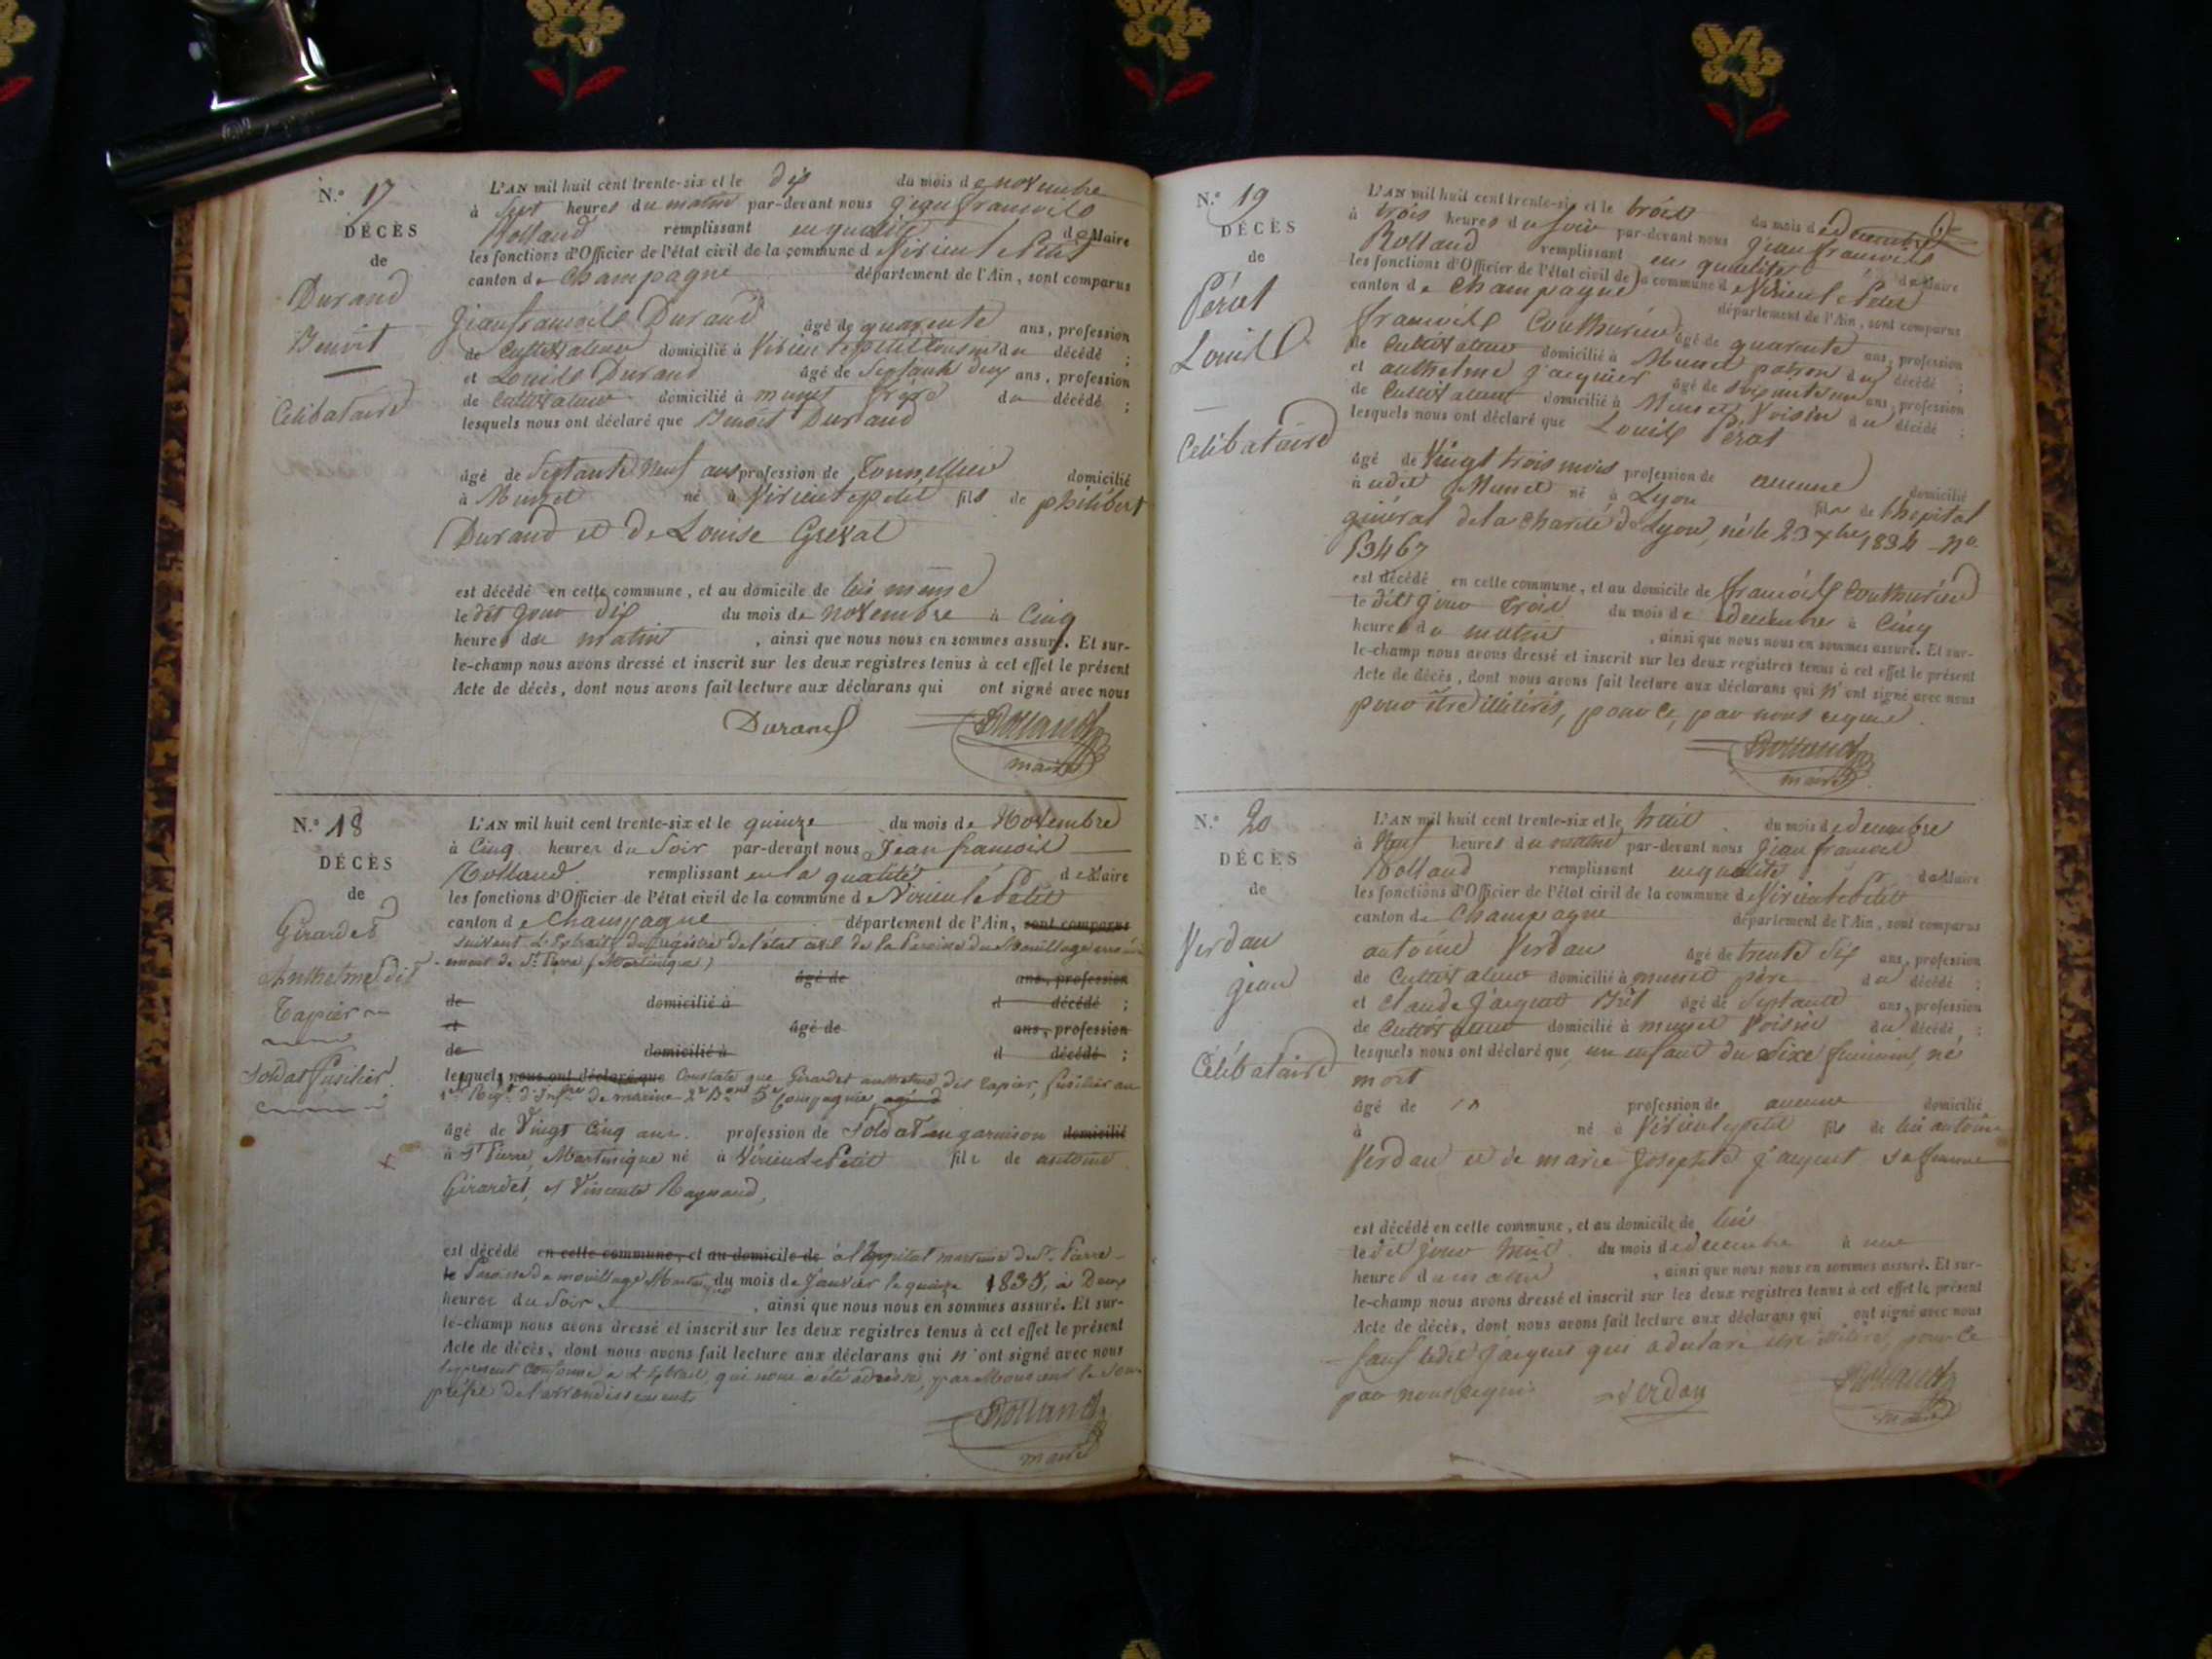 N.° 17
DÉCÈS
de
Durand
Benoit
Celibataire
L'AN mil huit cent trente-six et le dix du mois de novembre
à sept heures du matin par-devant nous jean francois
Rolland remplissant en qualité de Maire
les fonctions d'Officier de l'état civil de la commune de Virieu le Petit
canton de Champagne département de l'Ain, sont comparus
Jean francois Durand âgé de quarente ans, profession
de Cultivateur domicilié à Virieu le petit Cousin du décédé ;
et Louis Durand âgé de septante deux ans, profession
de Cultivateur domicilié à munet frère du décédé ;
lesquels nous ont déclaré que Benoit Durand
âgé de Septante Neuf ans profession de Tonnellier domicilié
à Munet né à Virieu le petit fils de philibert
Durand et de Louise Greval
est décédé en cette commune, et au domicile de lui même
le dit jour dix du mois de novembre à Cinq
heures du matin, ainsi que nous nous en sommes assuré. Et sur-
le-champ nous avons dressé et inscrit sur les deux registres tenus à cet effet le présent
Acte de décès, dont nous avons fait lecture aux déclarans qui ont signé avec nous
Durand Rolland
maire
N.° 18
DÉCÈS
de
Girardet
Anthelme dit
Tapier
Soldat fusilier
L'AN mil huit cent trente-six et le quinze du mois de Novembre
à Cinq heures du Soir par-devant nous Jean francois
Rolland remplissant en la qualité de Maire
les fonctions d'Officier de l'état civil de la commune de Virieu le Petit
canton de Champagne département de l'Ain, sont comparus
suivant L'Extrait du registre de l'état civil de la Paroisse du Mouillage
de St Pierre (Martinique)
âgé de ans, profession
de domicilié à d décédé ;
et âgé de ans, profession
de domicilié à d décédé ;
lesquels nous ont déclaré que Constate que Girardet anthelme dit Tapier, fusilier au
1er Régt d'Infrie de marine 2e Bont 5e Compagnie
âgé de Vingt Cinq ans. profession de Soldat en garnison domicilié
à St Pierre, Martinique né à Virieu le Petit fils de antoine
Girardet, et Vincente Raynaud,
est décédé en cette commune, et au domicile de à l'hopital maritime de St. Pierre
le Paroisse du mouillage du mois de Janvier le quinze 1835, à Deux
heures du Soir, ainsi que nous nous en sommes assuré. Et sur-
le-champ nous avons dressé et inscrit sur les deux registres tenus à cet effet le présent
Acte de décès, dont nous avons fait lecture aux déclarans qui n'ont signé avec nous
conforme à L'Extrait qui nous a été adressé par Monsieur le Sous
préfet de l'arrondissement
Rolland
maire
N.° 19
DÉCÈS
de
Pérat
Louis
Celibataire
L'AN mil huit cent trente-six et le trois du mois de decembre
à trois heures du soir par-devant nous jean francois
Rolland remplissant en qualité de Maire
les fonctions d'Officier de l'état civil de la commune de Virieu le Petit
canton de Champagne département de l'Ain, sont comparus
francois Couthurier âgé de quarente ans, profession
de Cultivateur domicilié à Munet patron du décédé ;
et anthelme jacquier âgé de ans, profession
de Cultivateur domicilié à Munet Voisin du décédé ;
lesquels nous ont déclaré que Louis Pérat
âgé de Vingt trois mois profession de aucune domicilié
à udit Munet né à Lyon fils de l'hopital
général de la Charité de Lyon, né le 23 xbre 1834 no.
13467
est décédé en cette commune, et au domicile de francois Couthurier
le dit jour trois du mois de decembre à Cinq
heures du matin, ainsi que nous nous en sommes assuré. Et sur-
le-champ nous avons dressé et inscrit sur les deux registres tenus à cet effet le présent
Acte de décès, dont nous avons fait lecture aux déclarans qui n'ont signé avec nous
pour être illitérés, pour ce, par nous requis.
Rolland
maire
N.° 20
DÉCÈS
de
Verdau
jean
Célibataire
L'AN mil huit cent trente-six et le huit du mois de decembre
à Neuf heures du matin par-devant nous jean francois
Rolland remplissant en qualité de Maire
les fonctions d'Officier de l'état civil de la commune de Virieu le Petit
canton de Champagne département de l'Ain, sont comparus
antoine Verdau âgé de trente six ans, profession
de Cultivateur domicilié à munet père du décédé ;
et Claude jacquet âgé de Septante ans, profession
de Cultivateur domicilié à munet Voisin du décédé ;
lesquels nous ont déclaré que un enfant du sixe feminin, né
mort
âgé de profession de aucune domicilié
à né à Virieu le petit fils de lui antoine
Verdau et de marie Josephte jacquet sa femme
est décédé en cette commune, et au domicile de lui
le dit jour huit du mois de decembre à une
heure du matin, ainsi que nous nous en sommes assuré. Et sur-
le-champ nous avons dressé et inscrit sur les deux registres tenus à cet effet le présent
Acte de décès, dont nous avons fait lecture aux déclarans qui ont signé avec nous
sauf ledit jacquet qui a déclaré être illitéré, pour ce
par nous requis Verdau Rolland
maire